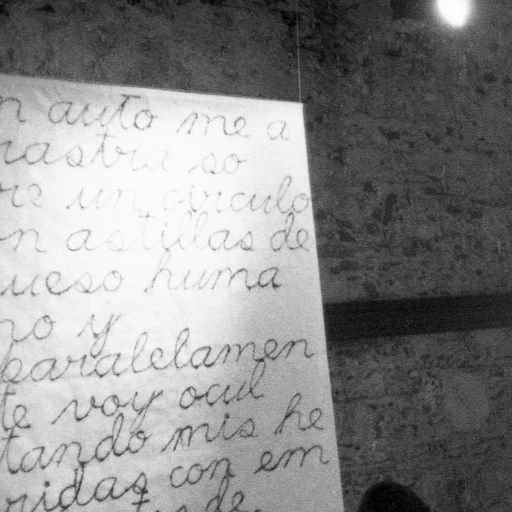 n auto me a
rastra so
re un circulo
on astillas de
ueso huma
no y
paralelamen
te voy ocul
tando mis he
ridas con em